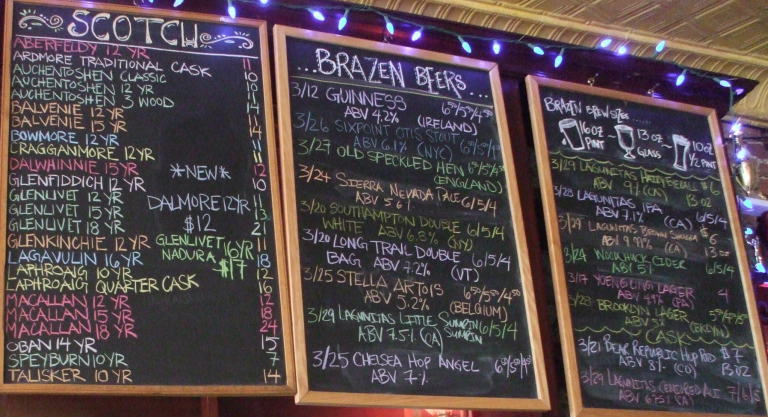 SCOTCH
ABERFELDY 12 YR 11
ARDMORE TRADITIONAL CASK 10
AUCHENTOSHEN CLASSIC
AUCHENTOSHEN 12 YR
AUCHENTOSHEN 3 WOOD 14
BALVENIE 12 YR 11
BALVENIE 15 YR 14
BOWMORE 12 YR 11
CRAGGANMORE 12 YR
DALWHINNIE 15 YR 12
GLENFIDDICH 12 YR 10
GLENLIVET 12 YR 11
GLENLIVET 15 YR 13
GLENLIVET 18 YR 21
GLENKINCHIE 12 YR 11
LAGAVULIN 16 YR 18
LAPHROAIG 10 YR 12
LAPHROAIG QUARTER CASK 16
MACALLAN 12 YR 12
MACALLAN 15 YR 18
MACALLAN 18 YR 24
OBAN 14 YR 15
SPEYBURN 10 YR 7
TALISKER 10 YR 14
*NEW*
DALMORE 12 YR
$12
GLENLIVET 16 YR
NADURA $17
...BRAZEN BEERS...
3/12 GUINNESS
ABV 4.2% (IRELAND)
3/26 SIXPOINT OTIS STOUT
ABV 6.1% (NYC)
3/27 OLD SPECKLED HEN
(ENGLAND)
3/24 SIERRA NEVADA PALE 6/5/4
ABV 5.6%
3/20 SOUTHAMPTON DOUBLE 6/5/4
WHITE ABV 6.8% (NY)
3/20 LONG TRAIL DOUBLE 6/5/4
BAG ABV 7.2% (VT)
3/25 STELLA ARTOIS
ABV 5.2% (BELGIUM)
3/29 LAGUNITAS LITTLE SUMPIN 6/5/4
SUMPIN
ABV 7.5% (CA)
3/25 CHELSEA HOP ANGEL
ABV 7%
BRAZEN BREW SIZES...
16 OZ PINT ~ 13 OZ GLASS ~ 10 OZ 1/2 PINT
3/29 LAGUNITAS $6
ABV 9% (CA) 13 OZ
3/28 LAGUNITAS IPA 6/5/4
ABV 7.1% (CA)
LAGUNITAS BROWN SHUGGA $6
ABV 9.99% (CA) 13 OZ
3/24 WOODCHUCK CIDER 6/5/4
ABV 5%
3/17 YUENGLING LAGER 4
ABV 4.9% (PA)
3/28 BROOKLYN LAGER
ABV 5% (BKLYN)
CASK
3/21 BEAR REPUBLIC HOP ROD $7
ABV 8% 13 OZ
3/29 LAGUNITAS CENSORED ALE 7/6/5
ABV (CA)